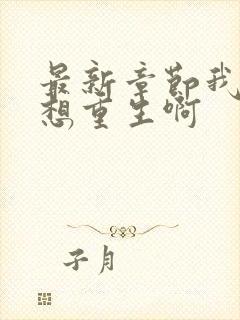 最新章节我
想重生啊
子月